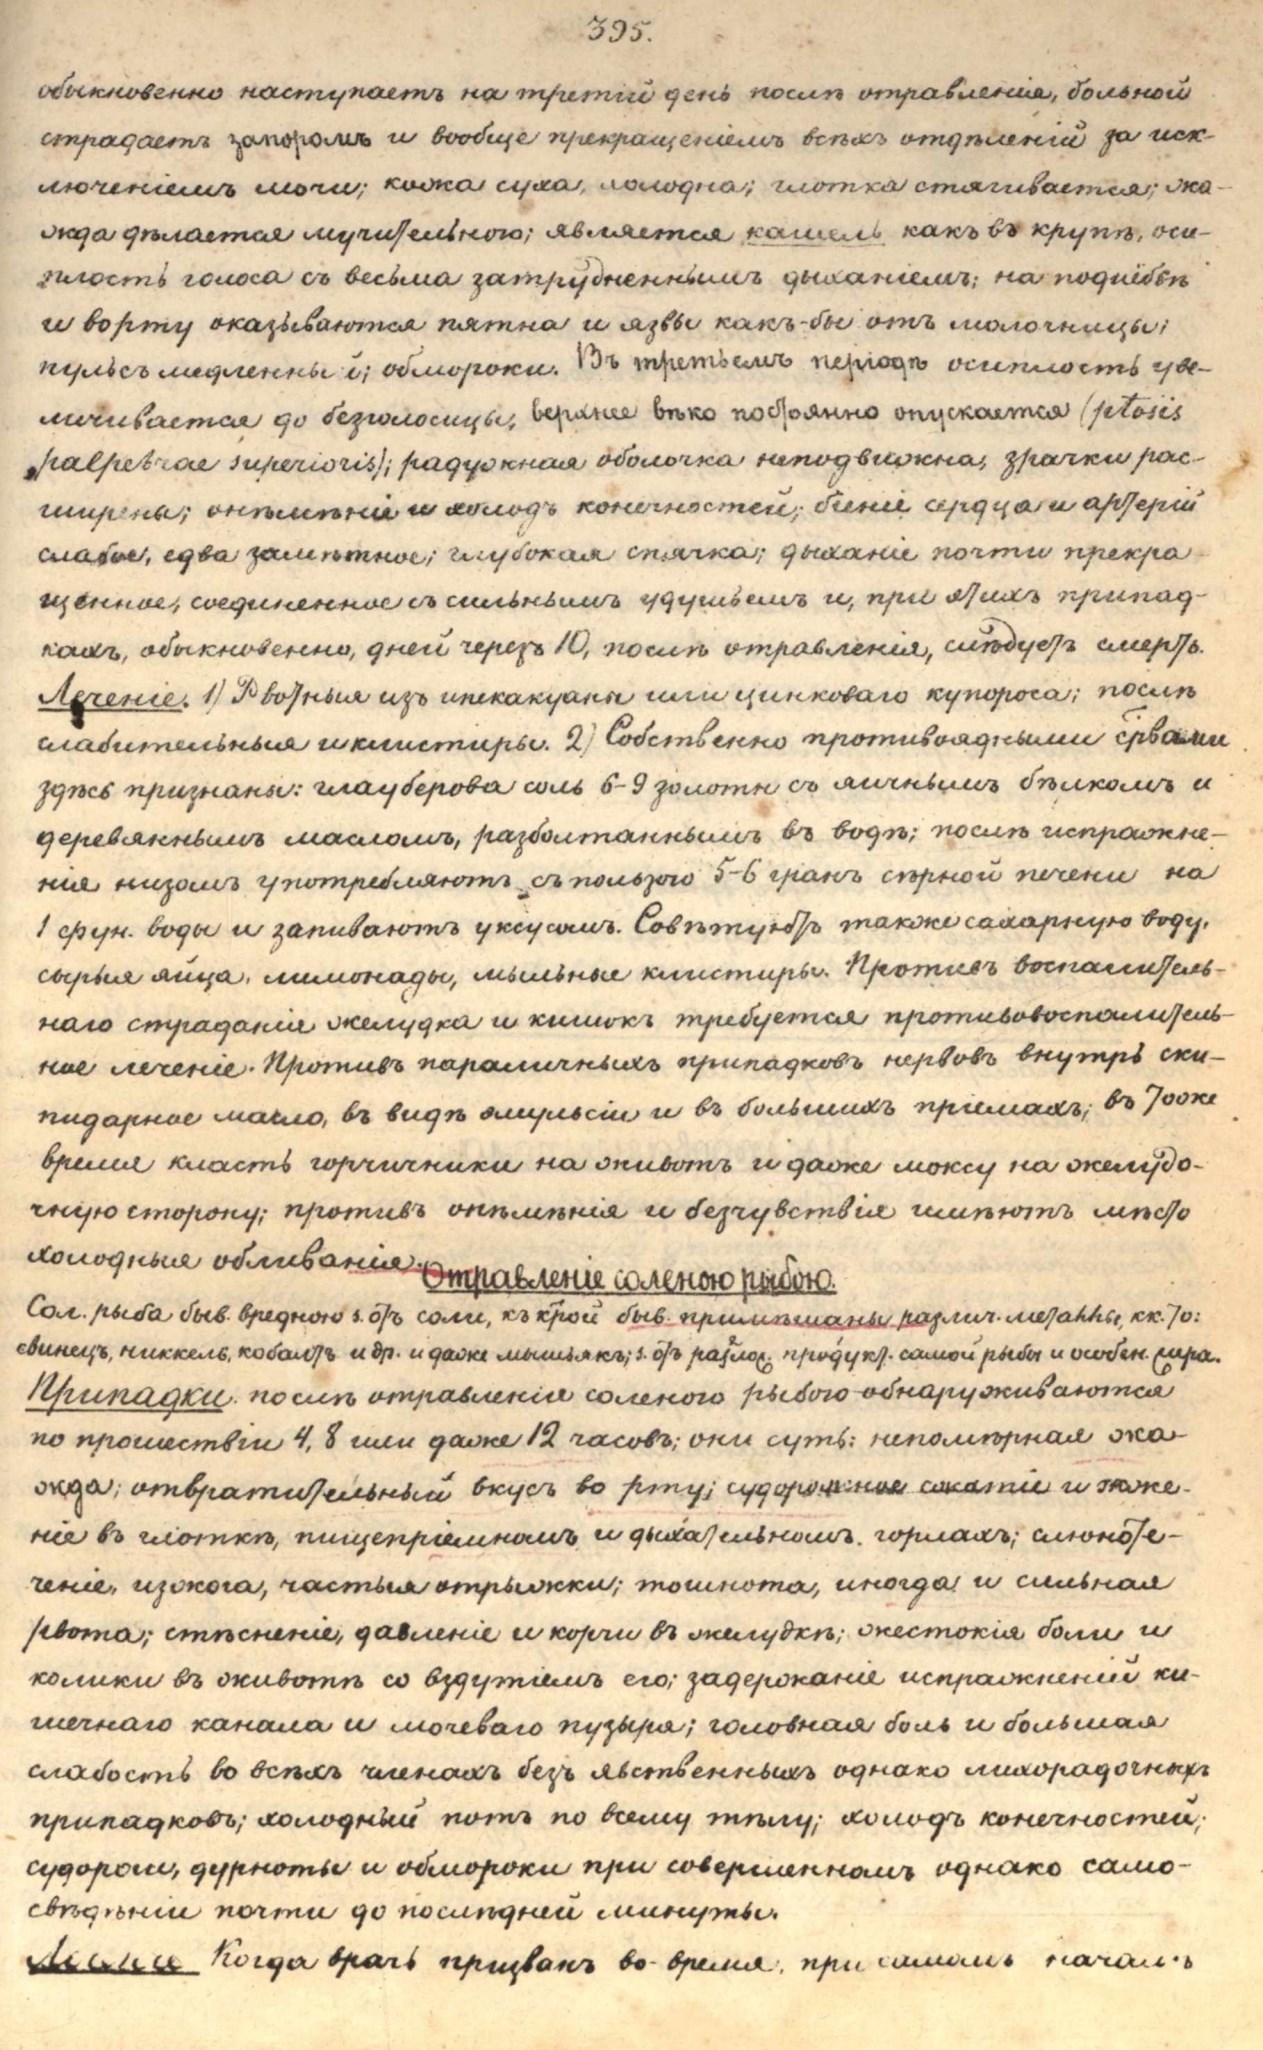 395.
обыкновенно наступаетъ на третій день послѣ отравленія, больной
страдаетъ запоромъ и вообще прекращеніемъ всѣхъ отдѣленій за иск-
люченіемъ мочи; кожа суха, холодна; глотка стягивается; жа-
жда дѣлается мучительною; является кашель какъ въ крупѣ, оси-
плость голоса съ весьма затрудненнымъ дыханіемъ; на поднёбѣ
и во рту оказываются пятна и язвы какъ-бы отъ молочницы;
пульсъ медленный; обмороки. Въ третьемъ періодѣ осиплость уве-
личивается до безголосицы, верхнее вѣко постоянно опускается (ptosis
palpebrae superioris); радужная оболочка неподвижна, зрачки рас-
ширены; онѣмѣніе и холодъ конечностей; біеніе сердца и артерій
слабое, едва замѣтное; глубокая спячка; дыханіе почти прекра-
щенное, соединенное съ сильнымъ удушьемъ и, при этихъ припад-
кахъ, обыкновенно, дней черезъ 10, послѣ отравленія, слѣдуетъ смерть.
Леченіе. 1) Рвотныя изъ ипекакуаны или цинковаго купороса; послѣ
слабительныя и клистиры. 2) Собственно противоядными срвами
здѣсь признаны: глауберова соль 6-9 золотн съ яичнымъ бѣлкомъ и
деревяннымъ масломъ, разболтаннымъ въ водѣ; послѣ испражне-
нія низомъ употребляютъ съ пользою 5-6 гранъ сѣрной печени на
1 фун. воды и запиваютъ уксусомъ. Совѣтуютъ также сахарную воду,
сырыя яйца, лимонады, мыльные клистиры. Противъ воспалитель-
наго страданія желудка и кишокъ требуется противовоспалитель-
ное леченіе. Противъ параличныхъ припадковъ нервовъ внутрь ски-
пидарное масло, въ видѣ эмульсіи и въ большихъ пріемахъ; въ тоже
время класть горчичники на животъ и даже моксу на желудо-
чную сторону; противъ онѣмѣнія и безчувствія имѣютъ мѣсто
холодныя обливанія.
Отравленіе соленою рыбою.
Сол. рыба быв. вредною s. отъ соли, къ крой быв. примѣшаны различ. металлы, кк. то:
свинецъ, никкель, кобальтъ и др. и даже мышьякъ; s. отъ разлож. продукт. самой рыбы и особен. жира.
Припадки послѣ отравленія соленою рыбою обнаруживаются
по прошествіи 4, 8 или даже 12 часовъ; они суть: непомѣрная жа-
жда; отвратительный вкусъ во рту; судорожное сжатіе и жже-
ніе въ глоткѣ, пищепріемномъ и дыхательномъ горлахъ; слюноте-
ченіе, изжога, частыя отрыжки; тошнота, иногда и сильная
рвота; стѣсненіе, давленіе и корчи въ желудкѣ; жестокія боли и
колики въ животѣ со вздутіемъ его; задержаніе испражненій ки-
шечнаго канала и мочеваго пузыря; головная боль и большая
слабость во всѣхъ членахъ безъ явственныхъ однако лихорадочныхъ
припадковъ; холодный потъ по всему тѣлу; холодъ конечностей;
судороги, дурноты и обмороки при совершенномъ однако само-
свѣдѣніи почти до послѣдней минуты.
Когда врачъ призванъ во-время, при самомъ началѣ